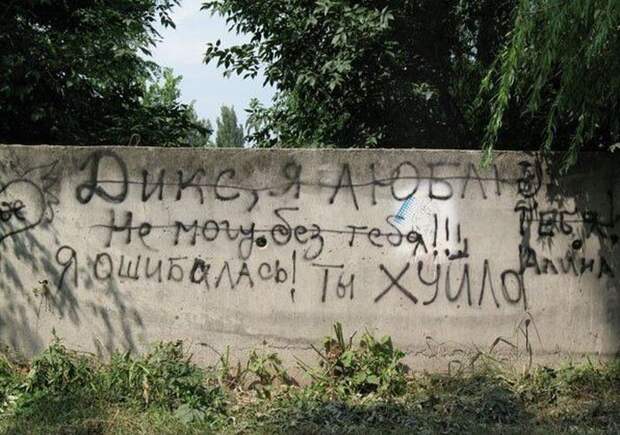 Дикс, я люблю тебя!
Не могу без тебя!!! Алина
Я ошибалась! Ты ХУЙЛО